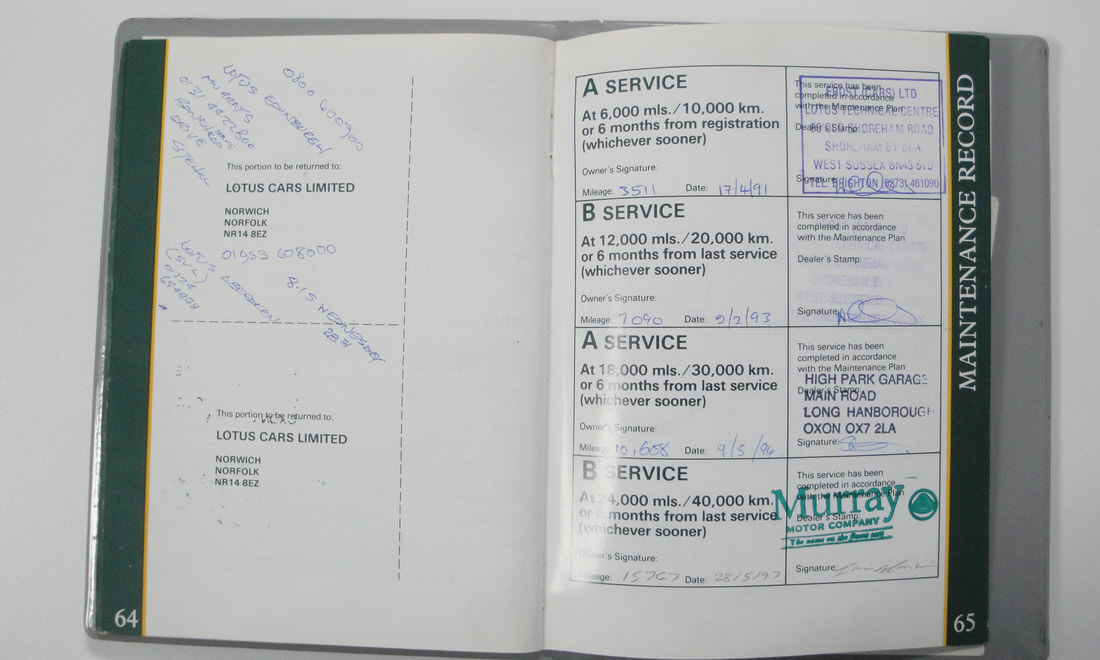 0800 600900
LOTUS EDINBURGH
MURRAYS
0131 4422800
BANKHEAD
DRIVE
SIGHTHILL
This portion to be returned to:
LOTUS CARS LIMITED
NORWICH
NORFOLK
NR14 8EZ
01953 608000
LOTUS ABERDEEN
8.15 WEDNESDAY
This portion to be returned to:
LOTUS CARS LIMITED
NORWICH
NORFOLK
NR14 8EZ
64
A SERVICE
At 6,000 mls./10,000 km.
or 6 months from registration
(whichever sooner)
Owner's Signature:
Mileage: 3511 Date: 17/4/91
This service has been
completed in accordance
with the Maintenance Plan
Dealer's Stamp:
FROST (CARS) LTD
LOTUS TECHNICAL CENTRE
SHOREHAM ROAD
SHOREHAM BY SEA
WEST SUSSEX BN43 5TD
TEL. BRIGHTON (0273) 461090
Signature:
B SERVICE
At 12,000 mls./20,000 km.
or 6 months from last service
(whichever sooner)
Owner's Signature:
Mileage: 7090 Date: 9/2/93
This service has been
completed in accordance
with the Maintenance Plan
Dealer's Stamp:
Signature:
A SERVICE
At 18,000 mls./30,000 km.
or 6 months from last service
(whichever sooner)
Owner's Signature:
Mileage: 10,608 Date: 9/5/94
This service has been
completed in accordance
with the Maintenance Plan
Dealer's Stamp:
HIGH PARK GARAGE
MAIN ROAD
LONG HANBOROUGH
OXON OX7 2LA
Signature:
B SERVICE
At 24,000 mls./40,000 km.
or 6 months from last service
(whichever sooner)
Owner's Signature:
Mileage: 15767 Date: 28/5/97
This service has been
completed in accordance
with the Maintenance Plan
Dealer's Stamp:
Murray
MOTOR COMPANY
The name on the finest cars
Signature:
MAINTENANCE RECORD
65